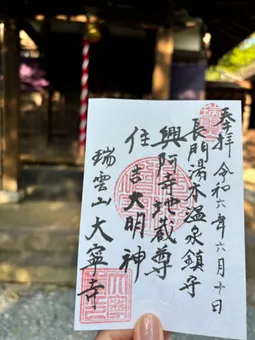 奉拝 令和六年六月十日
長門湯本温泉鎮守
興阿寺地蔵尊
住吉大明神
瑞雲山 大寧寺